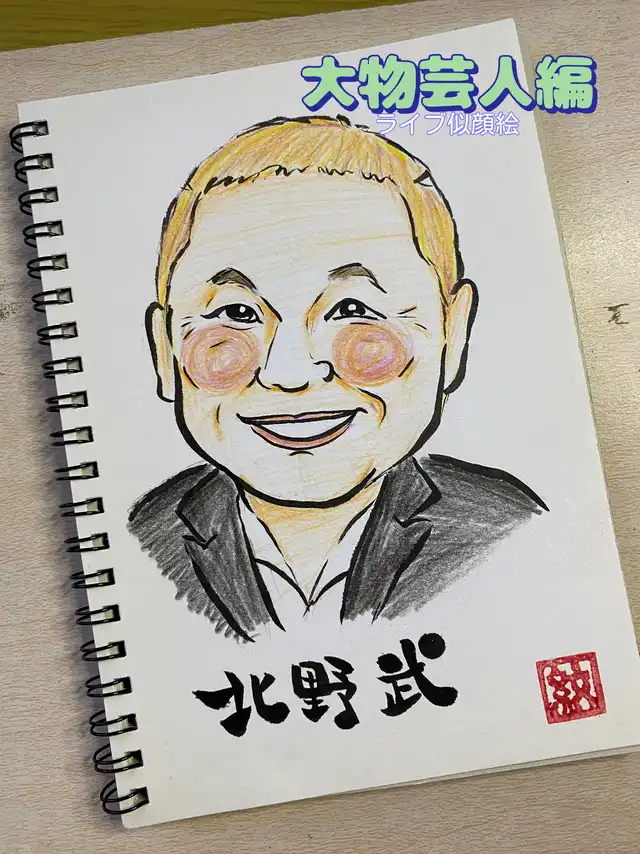 大物芸人編
ライブ似顔絵
北野武